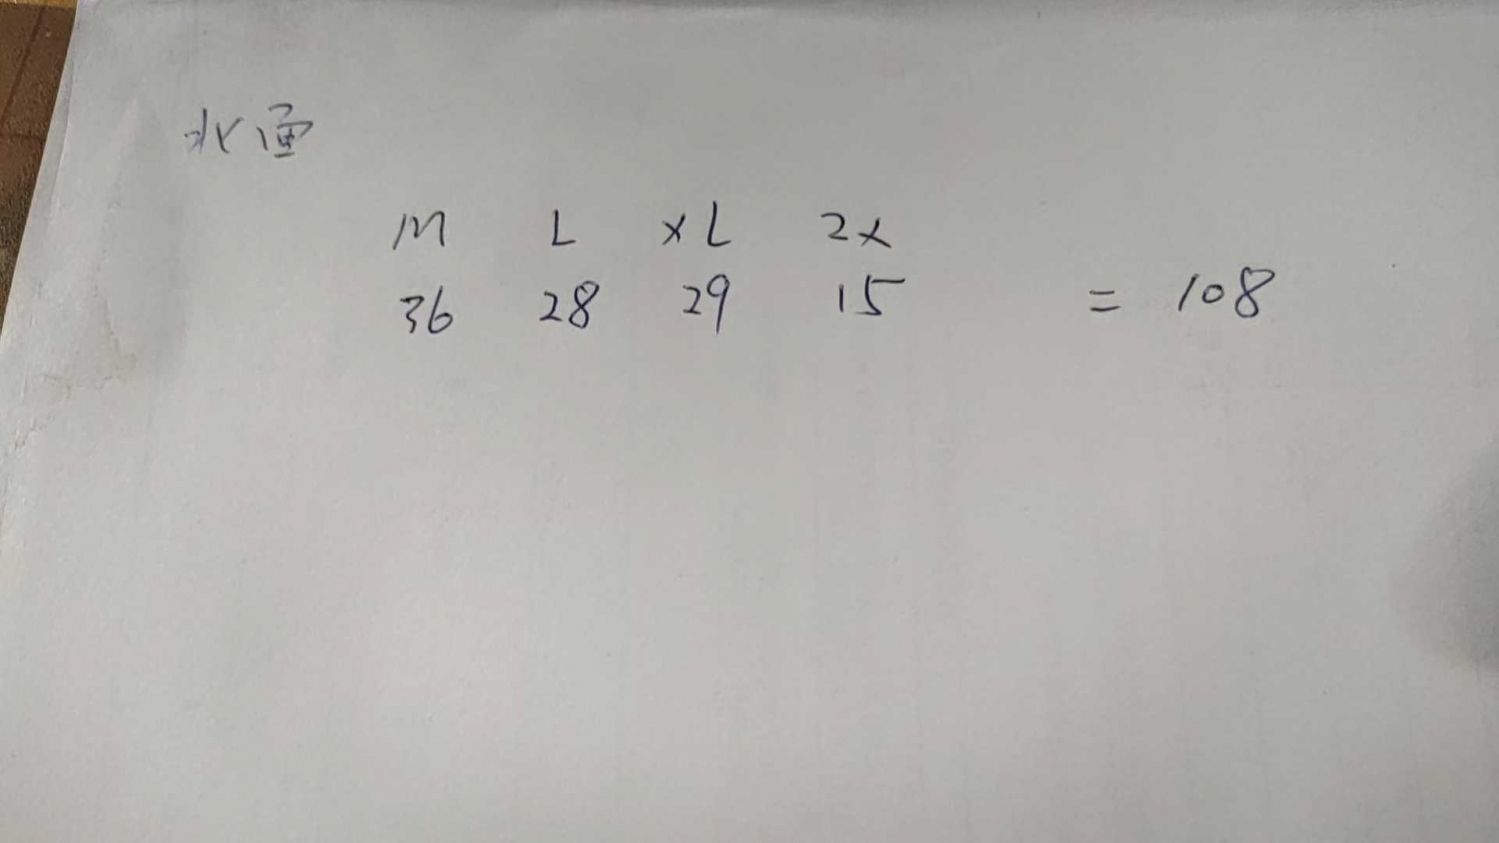 M L XL 2X
36 28 29 15 = 108